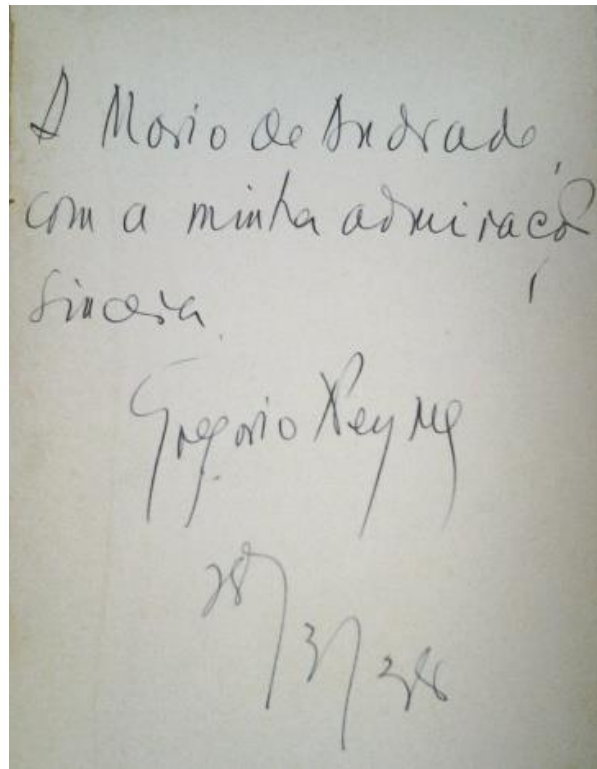 A Mario de Andrade,
com a minha admiração
sincera.
Gregorio Reynes
28/3/38